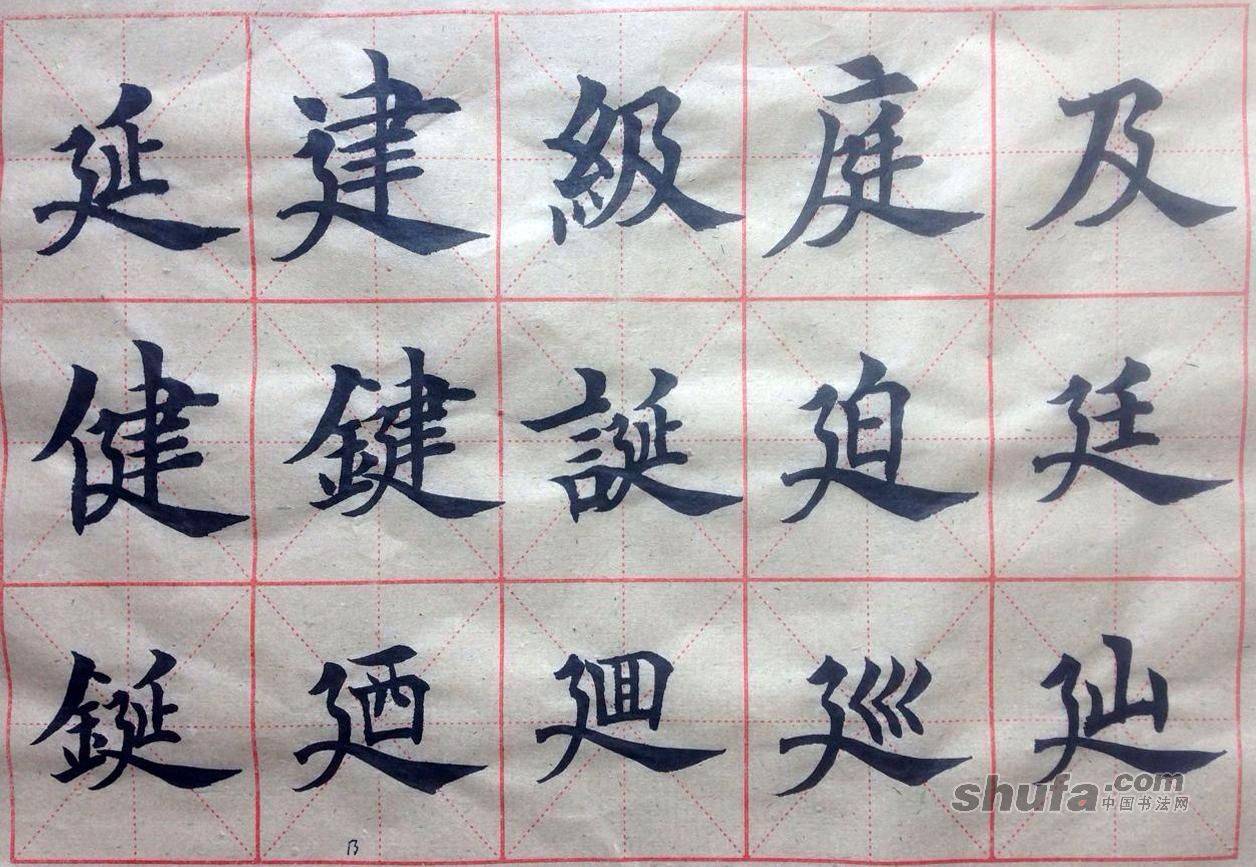 延建級庭及
健鍵誕廹廷
鋋廼廻巡㢟
shufa.com
中国书法网